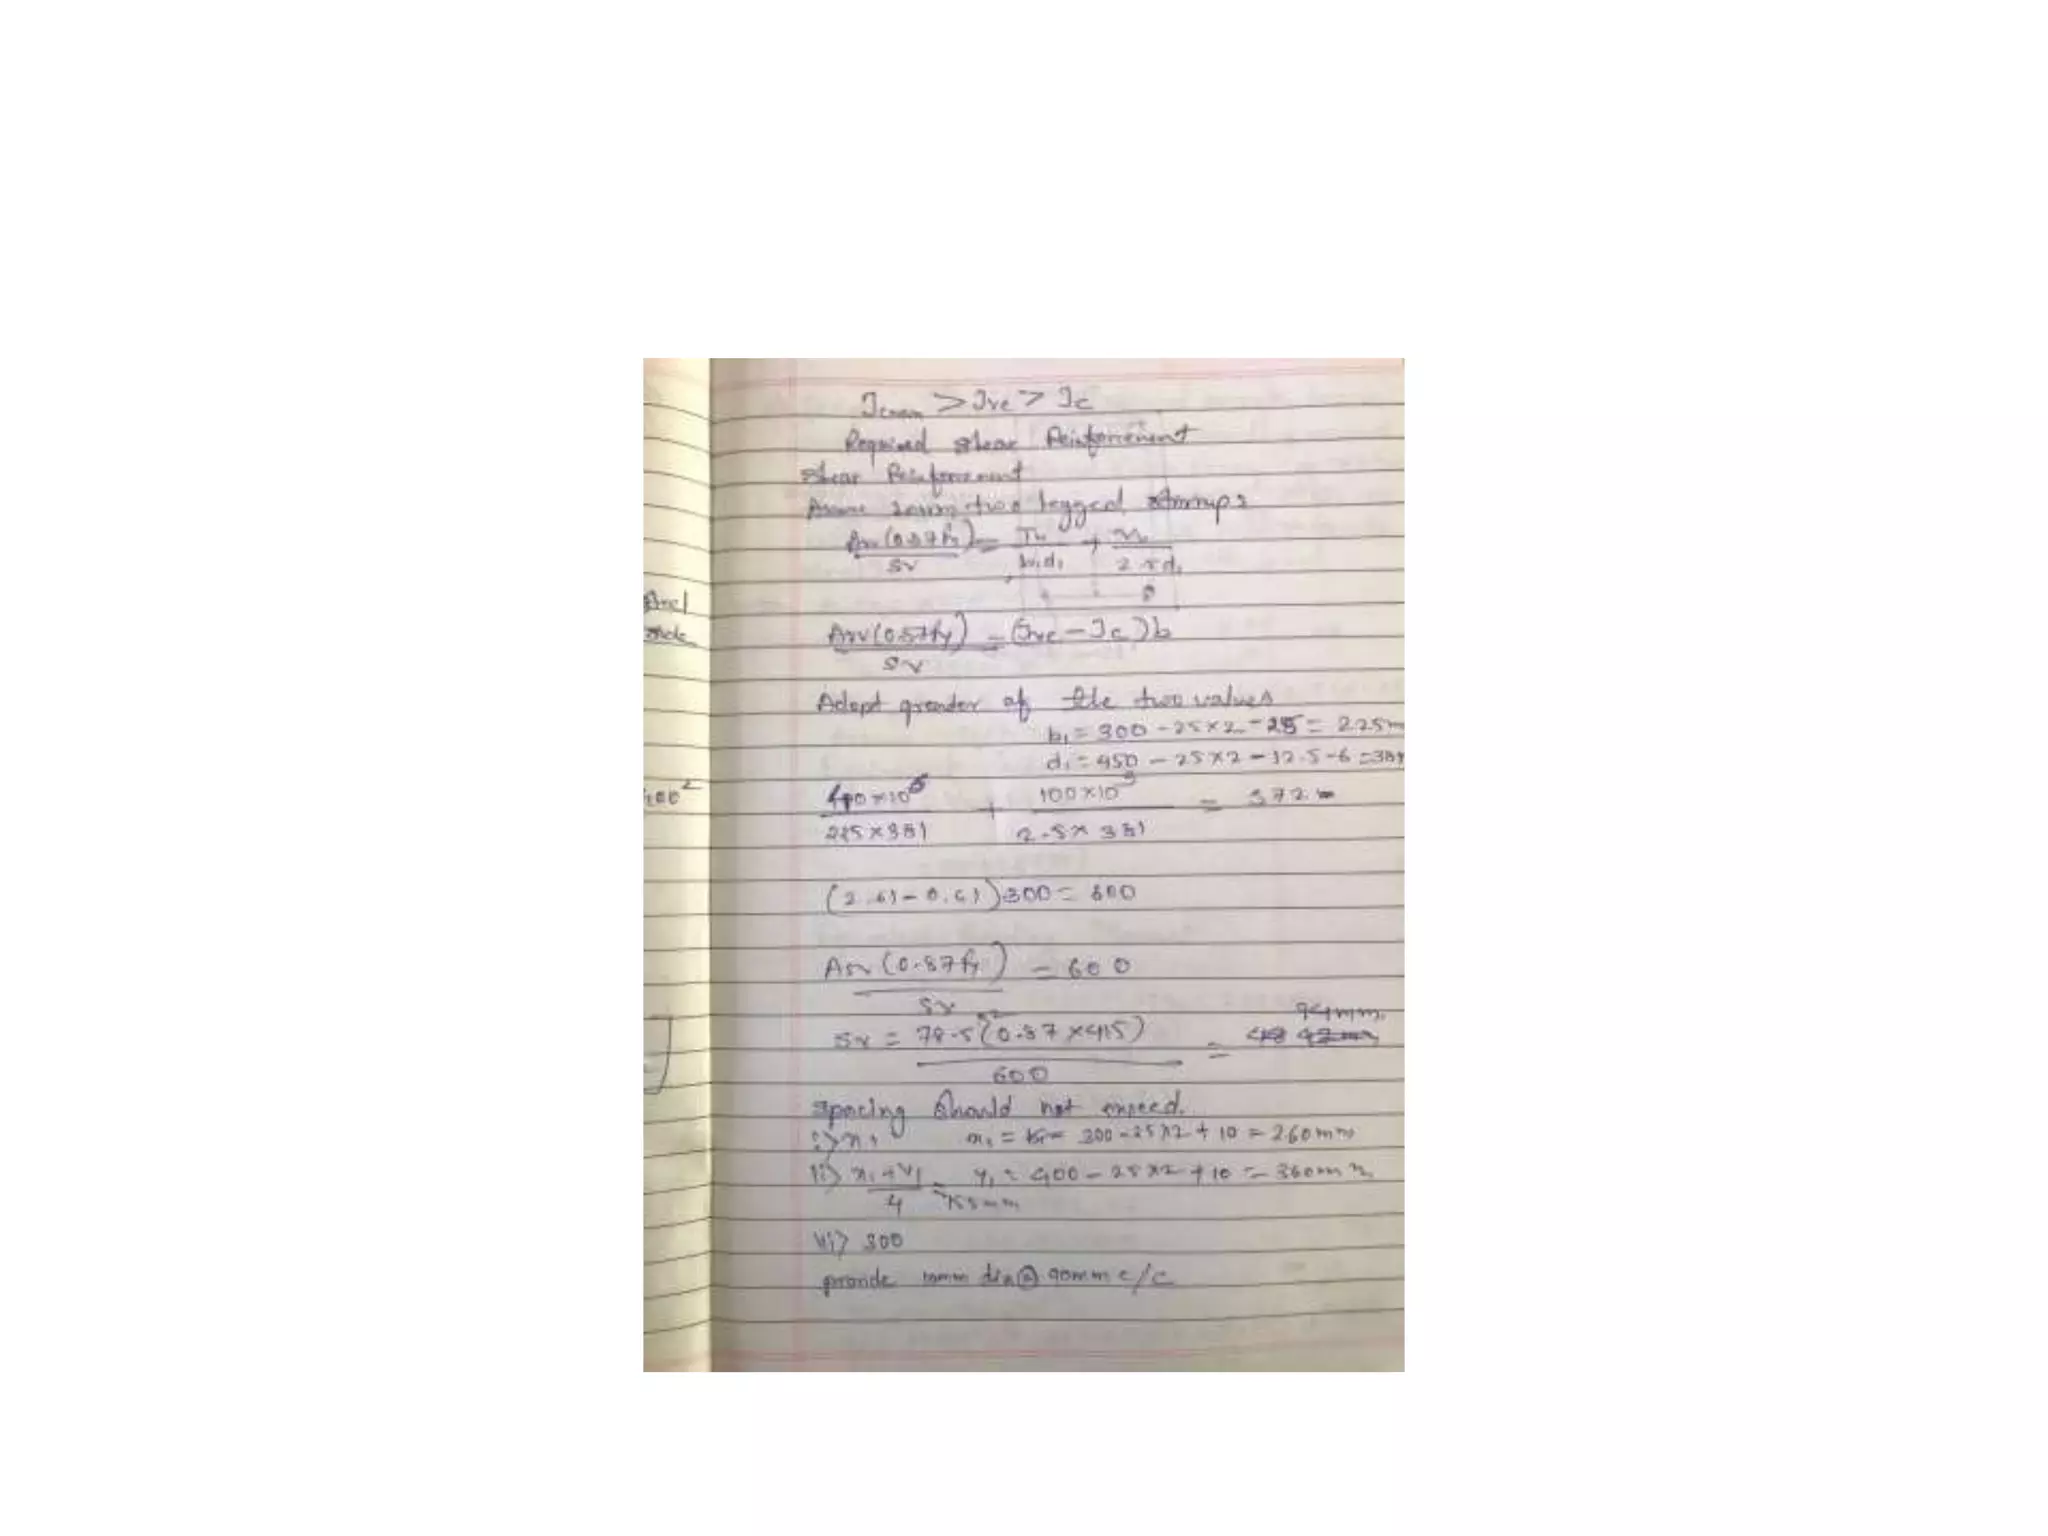 Tcmax > Tve > Tc
Required shear Reinforcement
shear Reinforcement
Assume 10mm two legged stirrups
Asv(0.87fy) / Sv = Tu / b1d1 + Vu / 2.5d1
Asv(0.87fy) / Sv = (Tve - Tc)b
Adopt greater of the two values
b1 = 300 - 25×2 - 25 = 225m
d1 = 450 - 25×2 - 12.5 - 6 = 381
225×381 + 100×10³ / 2.5×381 = 372
(2.61 - 0.61)300 = 600
Asv(0.87fy) / Sv = 600
94mm
Sv = 78.5×2(0.87×415) / 600 =
spacing should not exceed.
i> x1 x1 = 300 - 25×2 + 10 = 260mm
ii> x1+y1 / 4 = 155mm y1 = 400 - 25×2 + 10 = 360mm
iii> 300
provide 10mm dia @ 90mm c/c